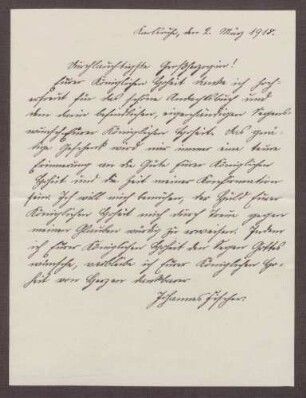 Karlsruhe, den 2. März 1918.
Durchlauchtigste Großherzogin!
Eurer Königlichen Hoheit danke ich hoch-
erfreut für das schöne Andachtsbuch und
den darin befindlichen, eigenhändigen Segens-
wunsch Eurer Königlichen Hoheit. Das gnä-
dige Geschenk wird mir immer eine teure
Erinnerung an die Güte Eurer Königlichen
Hoheit und die Zeit meiner Konfirmation
sein. Ich will mich bemühen, der Huld Eurer
Königlichen Hoheit mich durch Treue gegen
meinen Glauben würdig zu erweisen. Indem
ich Eurer Königlichen Hoheit den Segen Gottes
wünsche, verbleibe ich Eurer Königlichen Ho-
heit von Herzen dankbarer
Johannes Fischer.